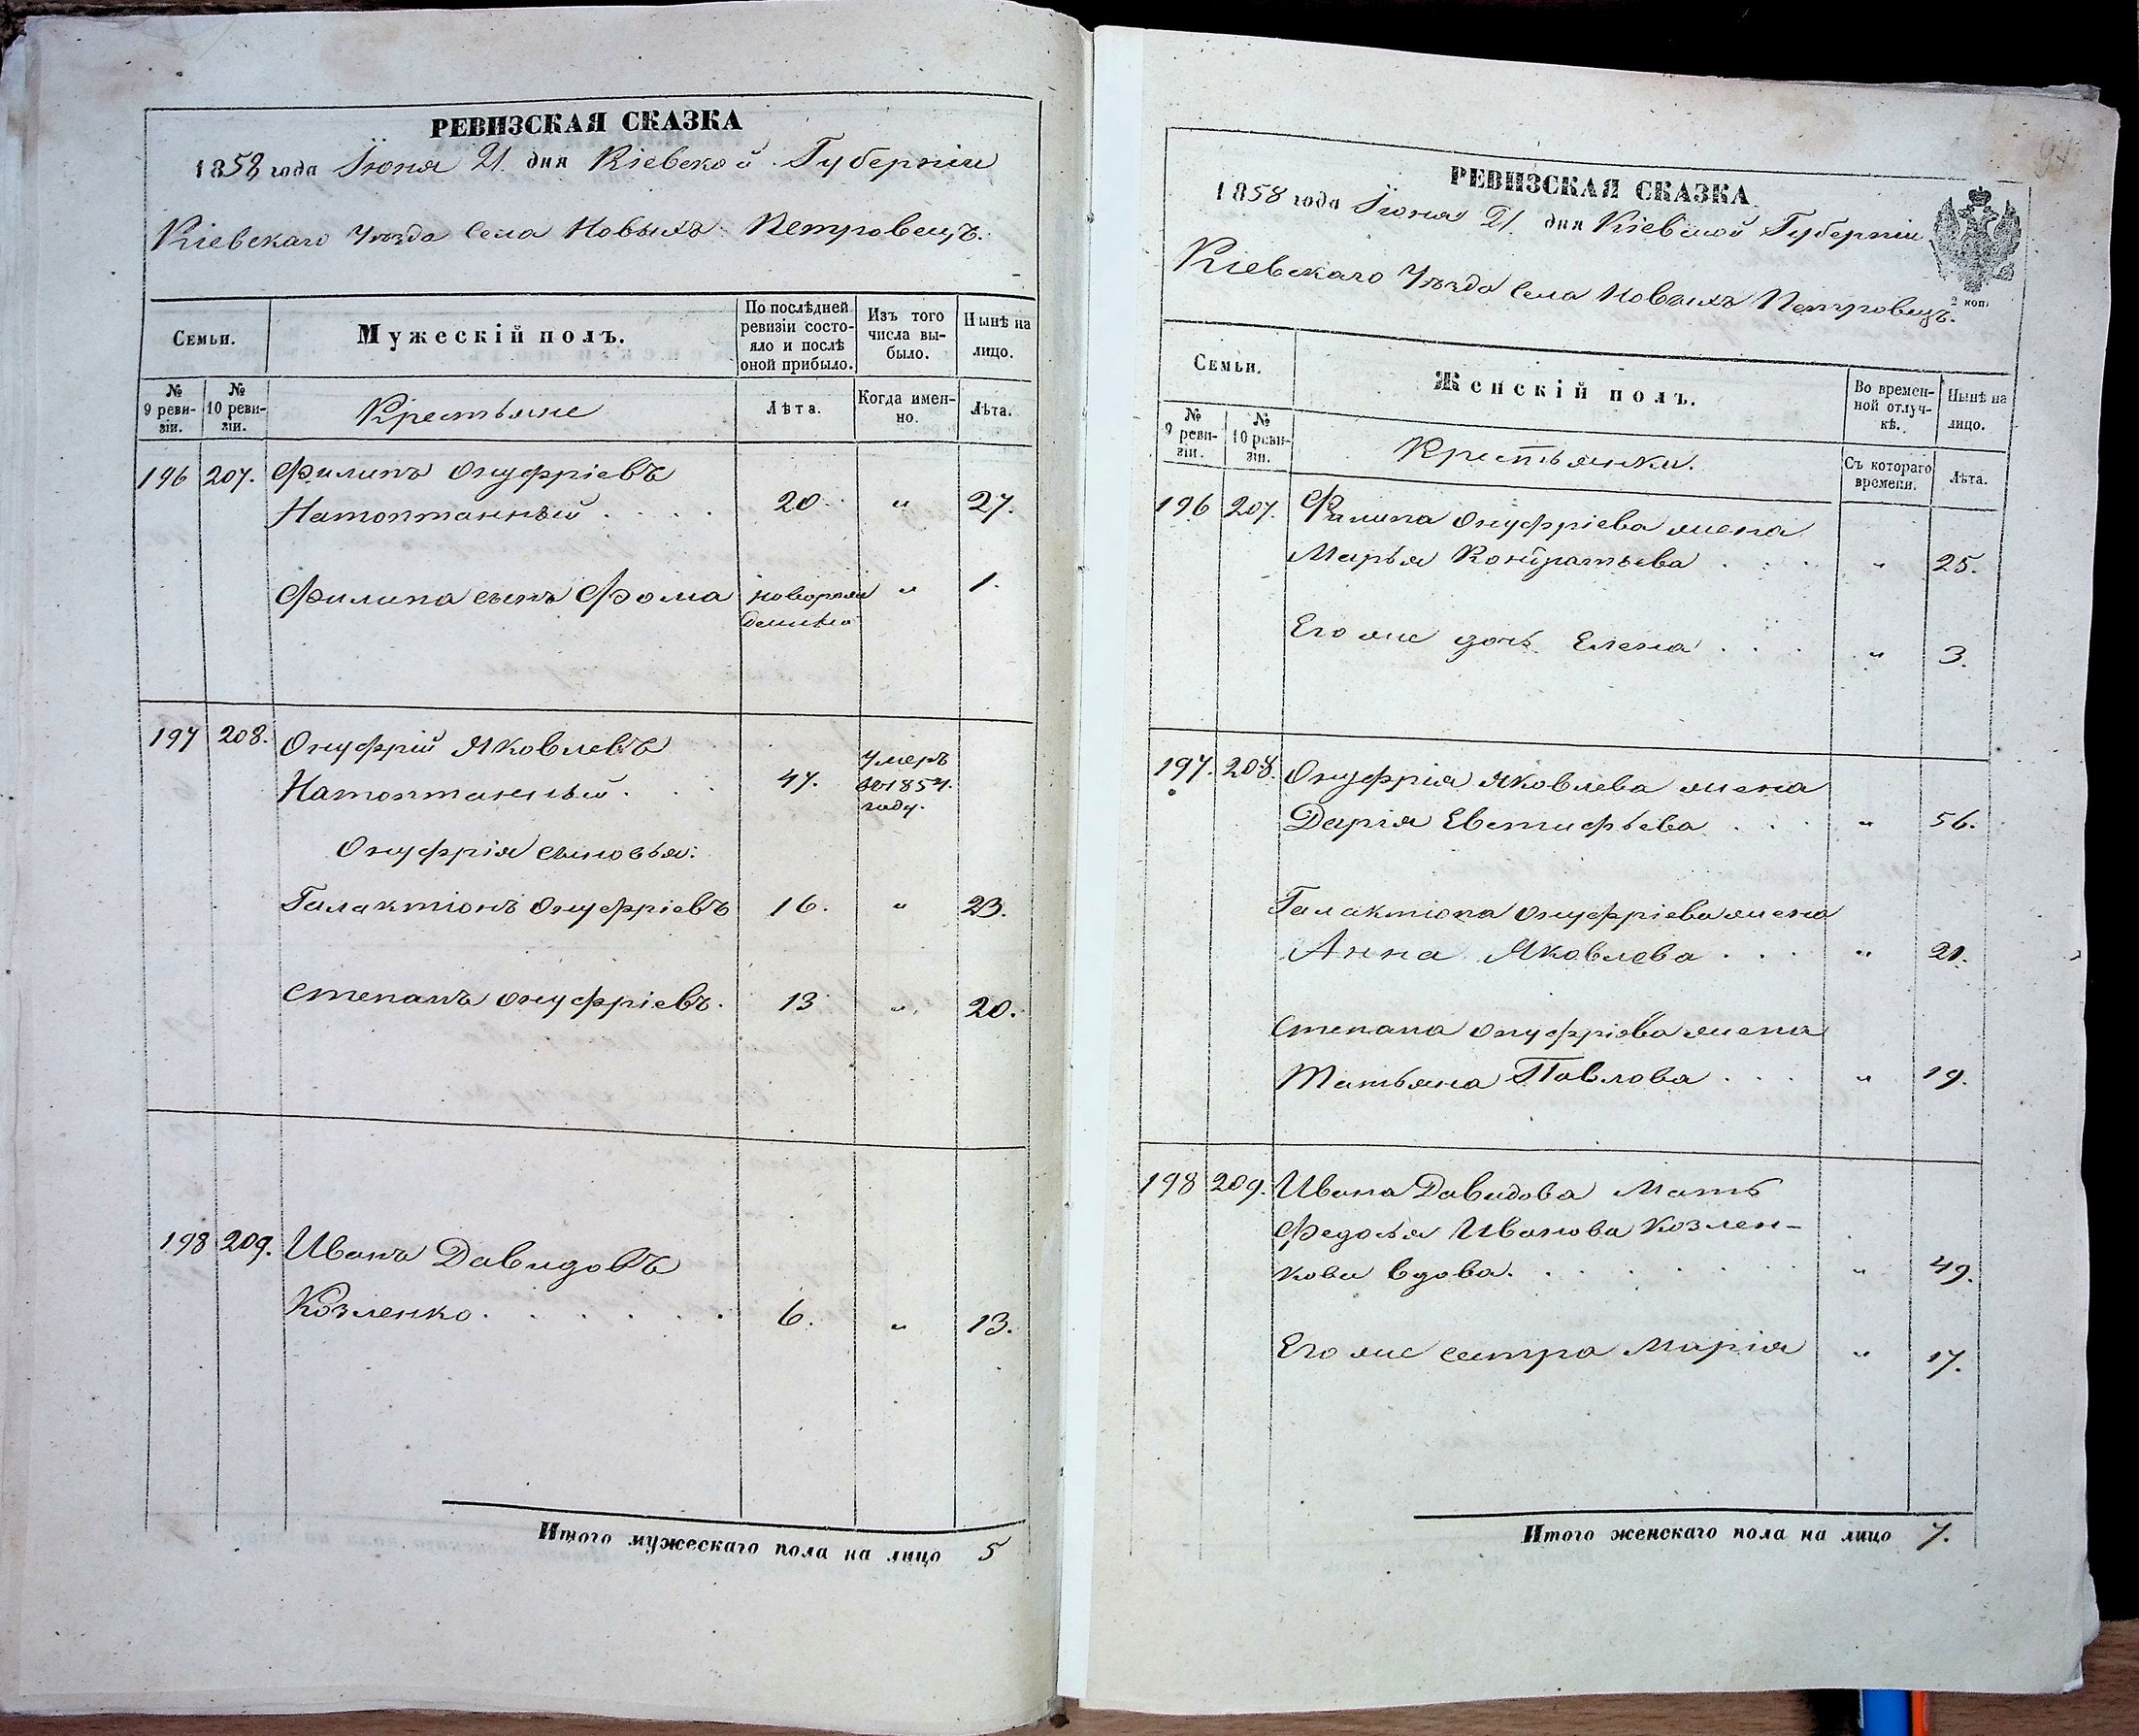 РЕВИЗСКАЯ СКАЗКА
1858 года Іюня 21 дня Кіевской Губерніи
Кіевскаго Уѣзда Села Новыхъ Петровецъ.
Семьи.
Мужескій полъ.
По послѣдней ревизіи состояло и послѣ оной прибыло.
Изъ того числа выбыло.
Нынѣ на лицо.
№ 9 ревизіи.
№ 10 ревизіи.
Крестьяне
Лѣта.
Когда именно.
Лѣта.
196 207. Филипъ Онуфріевъ
Натоптанный . . . . 20. " 27.
Филипа сынъ Фома новорожденный " 1.
197 208. Онуфрій Яковлевъ
Натоптанный. . . 47. Умеръ въ 1857. году.
Онуфрія сыновья:
Галактіонъ Онуфріевъ 16. " 23.
Степанъ Онуфріевъ. 13 " 20.
198 209. Иванъ Давидовъ
Козленко. . . . . . . 6. " 13.
Итого мужескаго пола на лицо 5
РЕВИЗСКАЯ СКАЗКА
1858 года Іюня 21 дня Кіевской Губерніи
2 коп.
Кіевскаго Уѣзда Села Новыхъ Петровецъ.
Семьи.
Женскій полъ.
Во временной отлучкѣ.
Нынѣ на лицо.
№ 9 ревизіи.
№ 10 ревизіи.
Крестьянки.
Съ котораго времени.
Лѣта.
196 207. Филипа Онуфріева жена
Марья Кондратьева . . . . " 25.
Его же дочь Елена . . . " 3.
197. 208. Онуфрія Яковлева жена
Дарія Евтифьева . . . . " 56.
Галактіона Онуфріева жена
Анна Яковлева . . . . " 21.
Степана Онуфріева жена
Татьяна Павлова . . . " 19.
198 209. Ивана Давидова Мать
Федосья Иванова Козлен-
кова вдова. . . . . . . . " 49.
Его же сестра Марія " 17.
Итого женскаго пола на лицо 7.